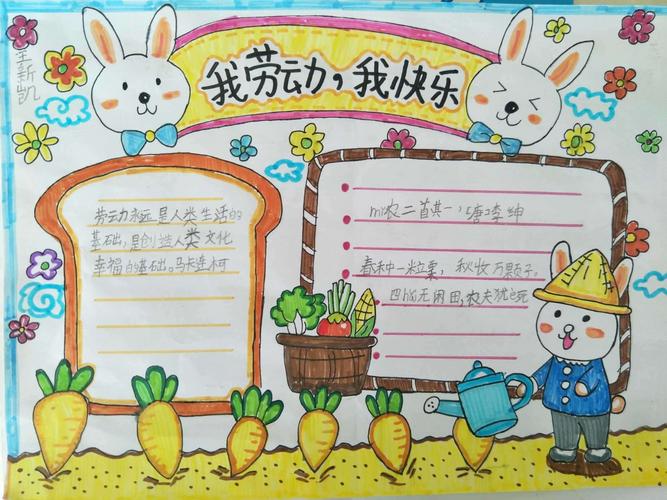 我劳动，我快乐
王新凯
劳动永远是人类生活的
基础，是创造人类文化
幸福的基础。马卡连柯
mǐn农二首其一，[唐]李绅
春种一粒粟，秋收万颗子。
四hǎi无闲田，农夫犹饿死